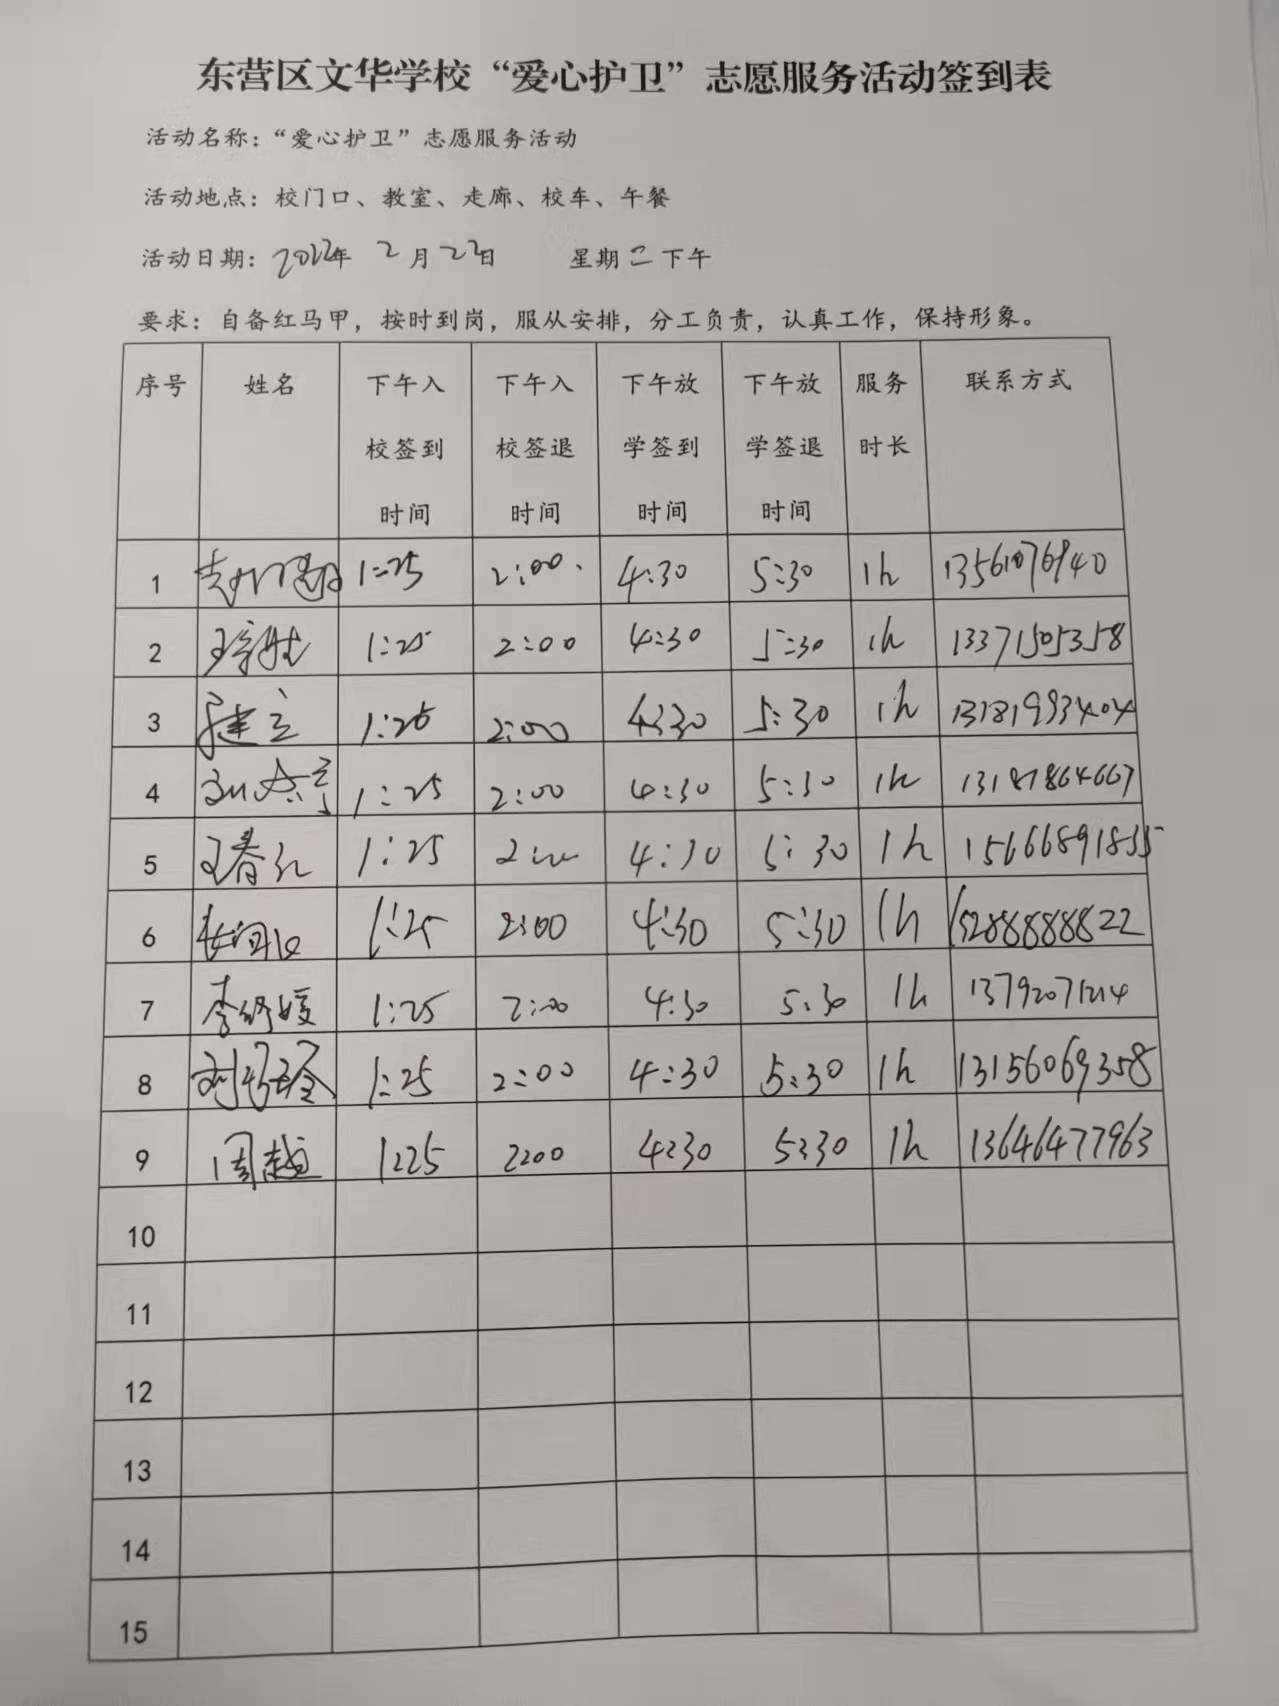 东营区文华学校“爱心护卫”志愿服务活动签到表
活动名称：“爱心护卫”志愿服务活动
活动地点：校门口、教室、走廊、校车、午餐
活动日期：2022年 2月22日 星期二下午
要求：自备红马甲，按时到岗，服从安排，分工负责，认真工作，保持形象。
序号 姓名 下午入校签到时间 下午入校签退时间 下午放学签到时间 下午放学签退时间 服务时长 联系方式
1 1:25 2:00 4:30 5:30 1h 13561076940
2 1:25 2:00 4:30 5:30 1h 13371505358
3 1:25 2:00 4:30 5:30 1h 13181993404
4 1:25 2:00 4:30 5:30 1h 13181864667
5 王春红 1:25 2:00 4:30 5:30 1h
6 1:25 2:00 4:30 5:30 1h 15288888822
7 1:25 2:00 4:30 5:30 1h 13792071214
8 1:25 2:00 4:30 5:30 1h 13156069358
9 周越 1:25 2:00 4:30 5:30 1h 13646477963
10
11
12
13
14
15